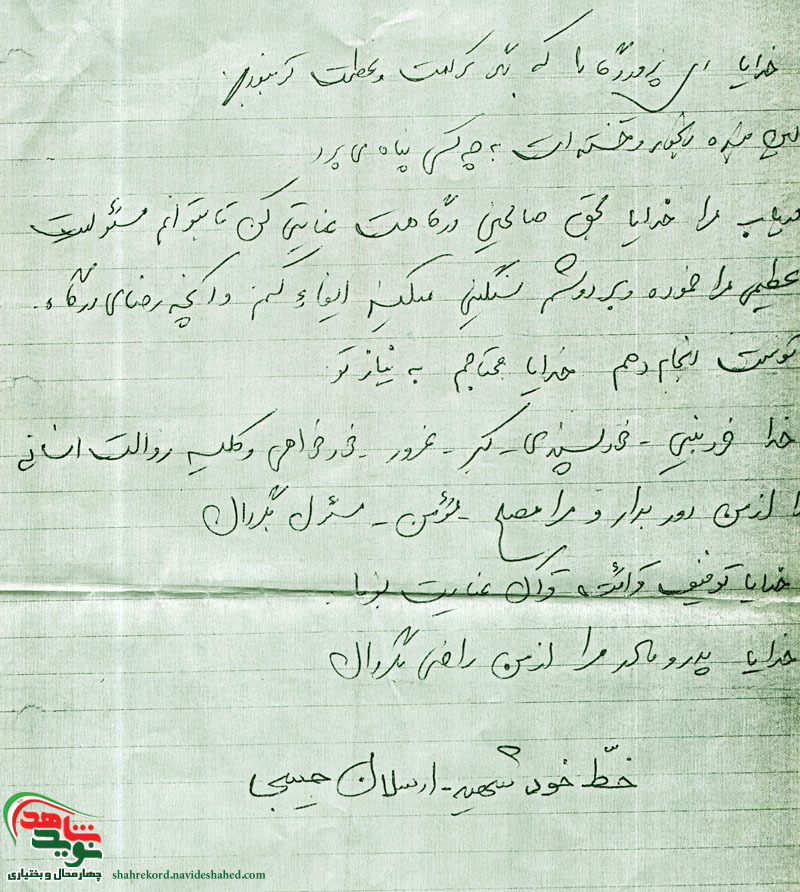 خدایا ای پروردگارا که بزرگی کرامت و عظمت گر نبود
این بنده رنجور و خسته ات به چه کسی پناه می برد
دریاب مرا خدایا بحق صالحین درگاهت عنایتی کن تا بتوانم مسئولیت
عظیمی مرا خورده و بر دوشم سنگینی میکند ایفاء کنم و آنچه رضای درگاه
توست انجام دهم خدایا محتاجم به نیاز تو
خدا خودبینی - خودپسندی - کبر - غرور - خودخواهی و کلیه رذالت انسانی
را از من دور بدار و مرا مصلح - مؤمن - مسئول بگردان
خدایا توفیق قرائت قرآن عنایت بفرما
خدایا پدر و مادر مرا از من راضی بگردان
خطّ خود شهید - ارسلان حبیبی
نوید شاهد
چهارمحال و بختیاری
shahrekord.navideshahed.com